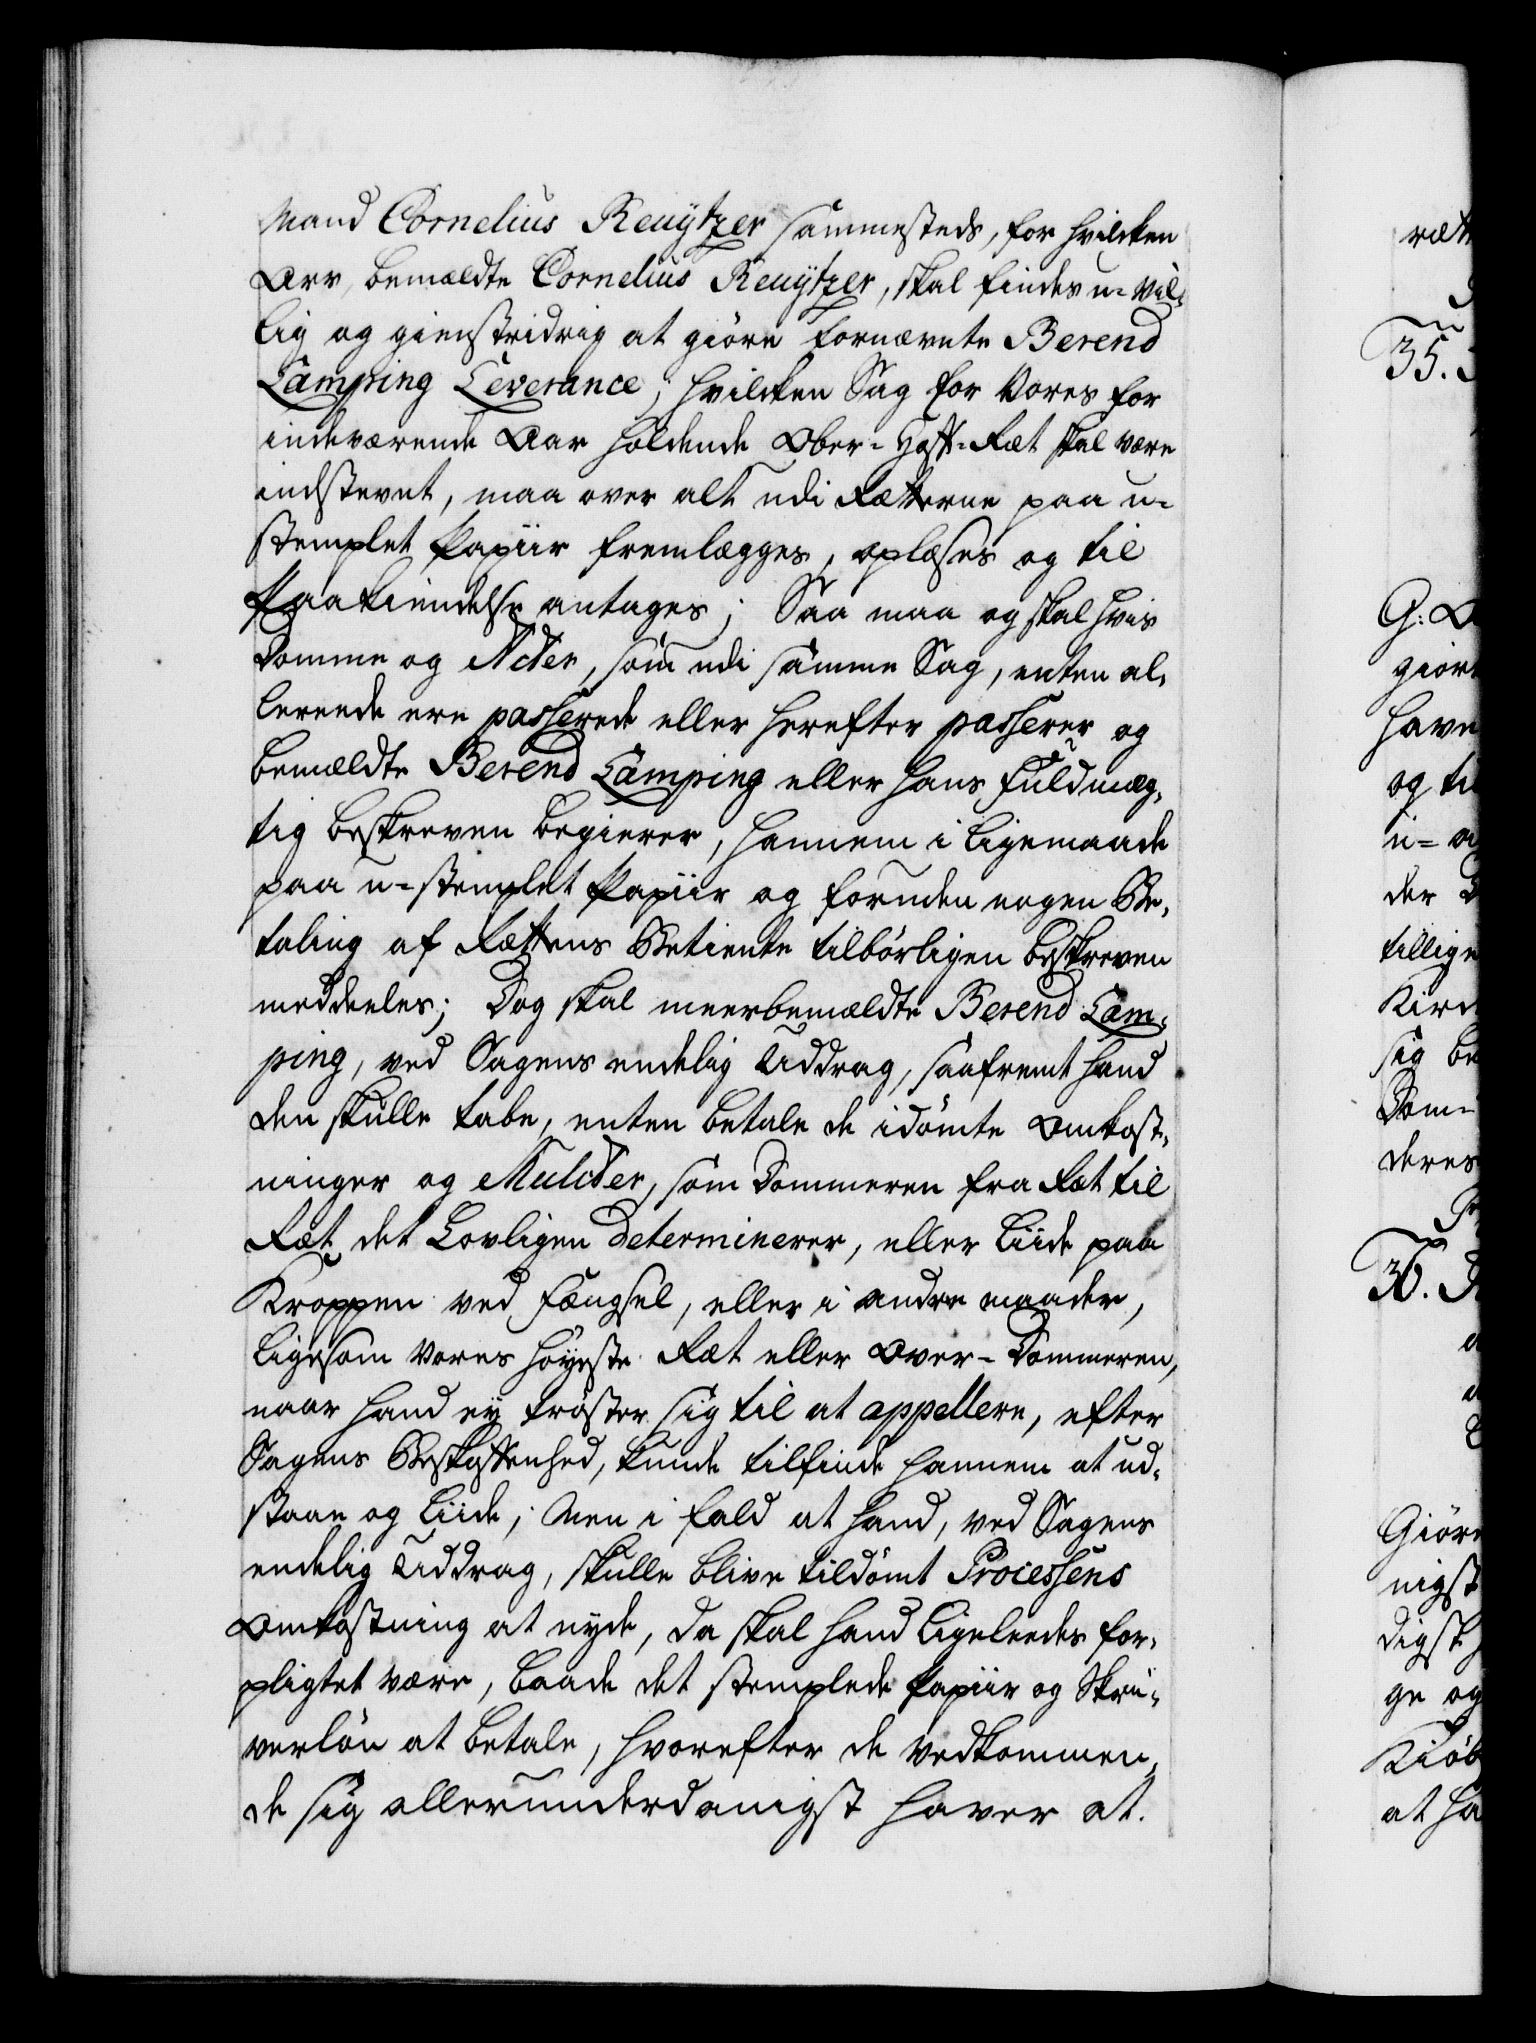 Mand Cornelius Reuÿtzer sammesteds, for hvilcken
Arv, bemældte Cornelius Reuÿtzer, skal findes u-vil-
lig og gienstridrig at giöre fornævnte Berend
Lamping Leverance; hvilcken Sag for Vores for
indeværende Aar holdende Ober-Hoff-Ræt skal være
indstevnt, maa over alt udi Rætterne paa u-
stemplet Papiir fremlægges, oplæses og til
Paakiendelse antages; Saa maa og skal hvis
Domme og Acter, som udi samme Sag, enten al-
lereede ere passerede eller herefter passerer og
bemældte Berend Lamping eller hans Fuldmæg-
tig beskreven begierer, hannem i ligemaade
paa u-stemplet Papiir og foruden nogen Be-
taling af Rættens Betiente tilbörligen beskreven
meddeeles; Dog skal meerbemældte Berend Lam-
ping, ved Sagens endelig Uddrag, saafremt hand
den skulle tabe, enten betale de idömte Omkost-
ninger og Mulcter, som Dommeren fra Ræt til
Ræt det Lovligen determinerer, eller liide paa
Kroppen ved Fængsel, eller i andre maader,
ligesom Vores höÿeste Ræt eller Over-Dommeren,
naar hand eÿ tröster sig til at appellere, efter
Sagens Beskaffenhed, kunde tilfinde hannem at ud-
staae og liide; Men i fald at hand, ved Sagens
endelig Uddrag, skulle blive tildömt Processens
Omkostning at nyde, da skal hand ligeleedes for-
pligtet være, baade det stemplede Papiir og Skri-
verlön at betale, hvorefter de Vedkommen-
de sig allerunderdanigst haver at.
35.
G:
giör
have
og
der
tillige
sig
Dom-
deres
36.
Giöre
nigst
digst
ge og
Kiöb
at ha